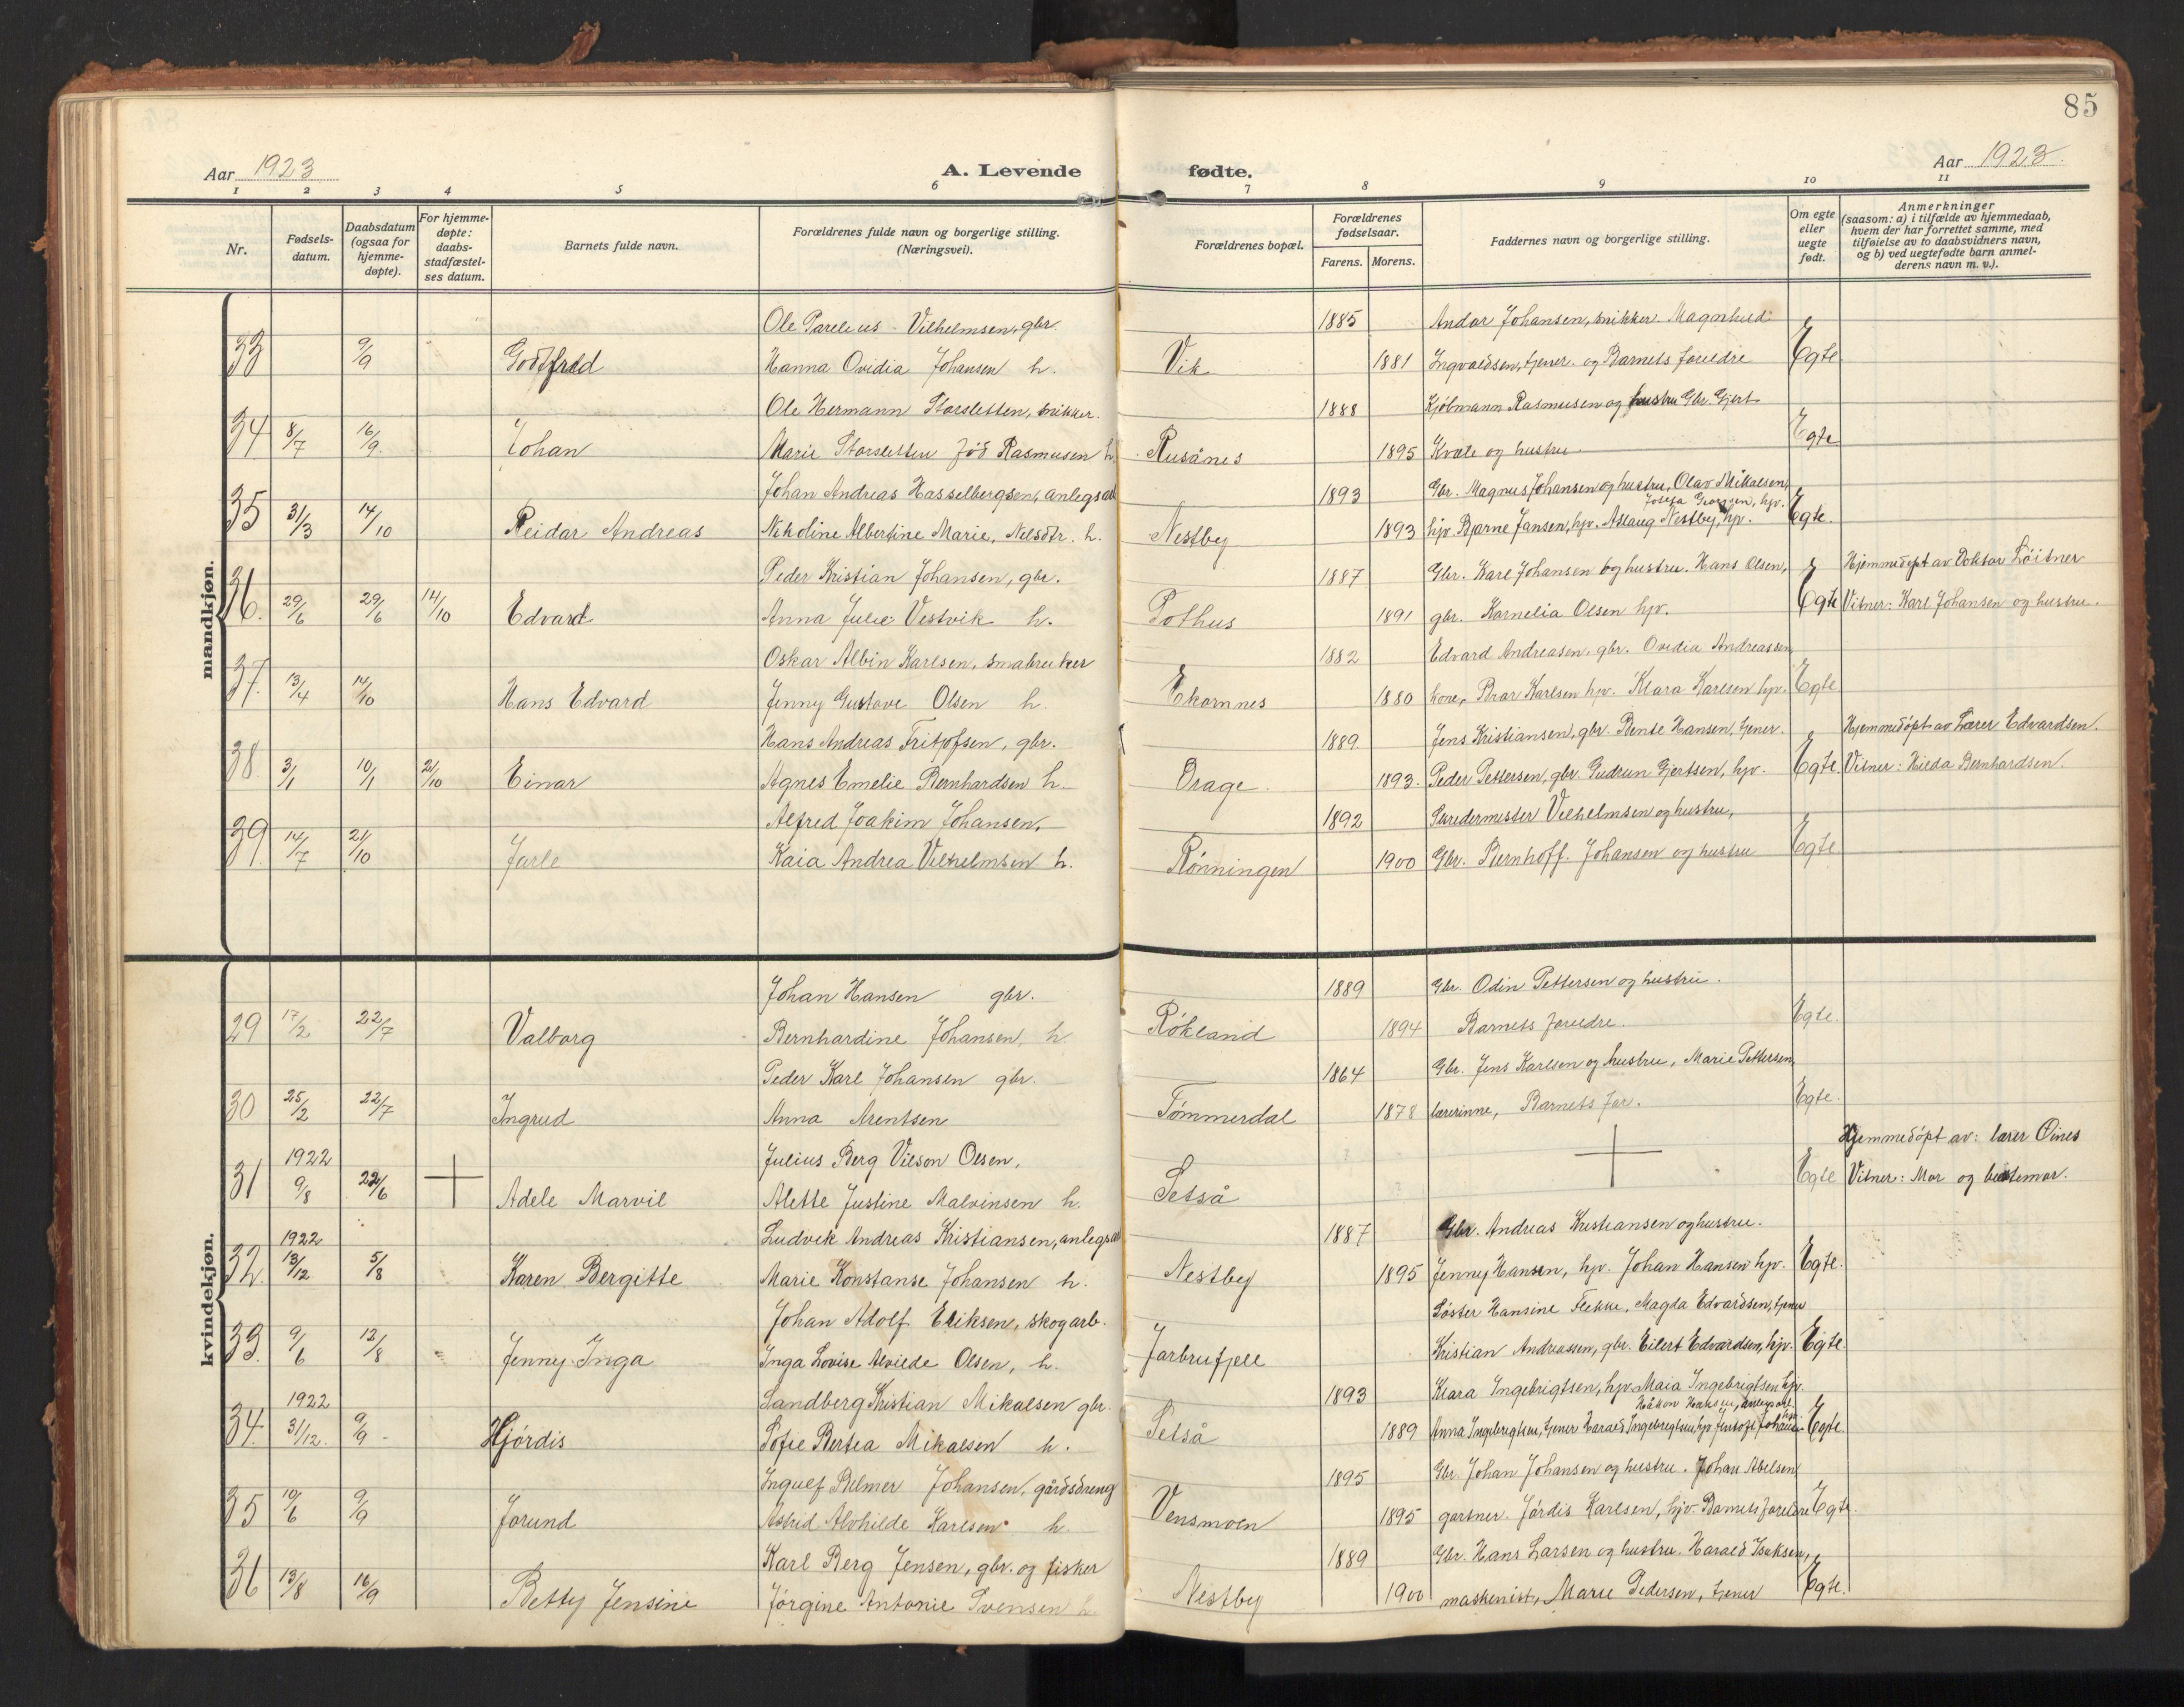 85
Aar 1923
A. Levende
fødte.
Aar 1923.
1 2 3 4 5 6 7 8 9 10 11
Nr.
Fødsels-
datum.
Daabsdatum
(ogsaa for
hjemme-
døpte).
For hjemme-
døpte:
daabs-
stadfæstel-
ses datum.
Barnets fulde navn.
Forældrenes fulde navn og borgerlige stilling.
(Næringsvei).
Forældrenes bopæl.
Forældrenes
fødselsaar.
Farens. Morens.
Faddernes navn og borgerlige stilling.
Om egte
eller
uegte
født.
Anmerkninger
(saasom: a) i tilfælde av hjemmedaab,
hvem der har forrettet samme, med
tilføielse av to daabsvidners navn,
og b) ved uegtefødte barn anmel-
derens navn m. v.).
mandkjøn.
Ole Parelius Vilhelmsen, gbr. 1885 Andor Johansen, snikker. Magnhud
33 9/9 Godtfred Hanna Ovidia Johansen h. Vik 1881 Ingvaldsen, tjener. og Barnets foreldre Egte
Ole Hermann Storsletten, snikker. 1888 Kjøbmann Rasmusen og hustru Gbr. Gjert
34 8/7 16/9. Johan Marie Storsletten fød Rasmusen h. Rusånes 1895 Kvæle og hustru. Egte
Johan Andreas Hasselbergsen, anlegsarb 1893 Gbr. Magnus Johansen og hustru, Olav Mikalsen,
35 31/3 14/10 Reidar Andreas Nikoline Albertine Marie, Nelsdtr. h. Nestby 1893 hjv. Bjarne Jansen, hjv. Aslaug Nestby, hjv. Egte.
Peder Kristian Johansen, gbr. 1887 Gbr. Karl Johansen og hustru. Hans Olsen, Hjemmedøpt av Doktor Løitner
36. 29/6 29/6 14/10 Edvard Anna Julie Vestvik h. Pothus 1891 gbr. Kornelia Olsen hjv. Egte Vitner: Karl Johansen og hustru.
Oskar Albin Karlsen, småbruker 1882 Edvard Andreasen, gbr. Ovidia Andreassen
37. 13/4 14/10 Hans Edvard Jenny Gustave Olsen h. Ekornnes 1880 kone, Brar Karlsen hjv. Klara Karlsen hjv. Egte
Hans Andreas Fritjofsen, gbr. 1889 Jens Kristiansen, gbr. Bente Hansen, tjener. Hjemmedøpt av Lærer Edvardsen.
38. 3/1 10/1 21/10 Einar Agnes Emelie Bernhardsen h. Drage. 1893. Peder Pettersen, gbr. Gudrun Gjertsen, hjv. Egte. Vitner: Hilda Bernhardsen.
Alfred Joakim Johansen, 1892 Skredermester Vilhelmsen og hustru,
39. 14/7 21/10 Jarle Kaia Andrea Vilhelmsen h. Rønningen 1900 Gbr. Bernhoff. Johansen og hustru Egte
kvindekjøn.
Johan Hansen gbr. 1889 Gbr. Odin Pettersen og hustru.
29 17/2 22/7 Valborg Bernhardine Johansen, h Røkland 1894 Barnets foreldre. Egte.
Peder Karl Johansen gbr. 1864 Gbr. Jens Karlsen og hustru, Marie Pettersen,
30 25/2 22/7 Ingrud Anna Arentsen Tømmerdal 1878 lærerinne, Barnets far. Egte.
1922 Julius Berg Vilson Olsen, Hjemmedøpt av: lærer Øines
31 9/8 22/6 Adele Marvil Alette Justine Malvinsen h. Setså Egte Vitner: Mor og bestemor.
1922 Ludvik Andreas Kristiansen, anlegsarb 1887 Gbr. Andreas Kristiansen og hustru.
32. 13/12 5/8 Karen Bergitte Marie Konstanse Johansen h. Nestby 1895 Jenny Hansen, hjv. Johan Hansen hjv. Egte.
Johan Adolf Eriksen, skogarb. Søster Hansine Flekke, Magda Edvardsen, tjener
33. 9/6 12/8 Jenny Inga Inga Lovise Alvilde Olsen, h. Jarbrufjell Kristian Andreassen, gbr. Eilert Edvardsen, hjv. Egte.
1922 Sandberg Kristian Mikalsen gbr. 1893 Klara Ingebrigtsen, hjv. Maia Ingebrigtsen hjv.
34. 31/12. 9/9 - Hjørdis Sofie Bertea Mikalsen h. Setså 1889 Anna Ingebrigtsen, tjener Harald Ingebrigtsen, hjv Johansen Egte.
Ingulf Belmer Johansen, gårdsdreng 1895 Gbr. Johan Johansen og hustru. Johan Abelsen,
35 10/6 9/9 Jorund Astrid Alvhilde Karlsen h. Vensmoen 1895 gartner. Jørdis Karlsen, hjv. Barnets foreldre Egte.
Karl Berg Jensen, gbr. og fisker 1889 Gbr. Hans Larsen og hustru. Harald Isaksen,
36 13/8 16/9 Betty Jensine Jørgine Antonie Svensen h. Nestby 1900 maskinist, Marie Pedersen, tjener Egte.